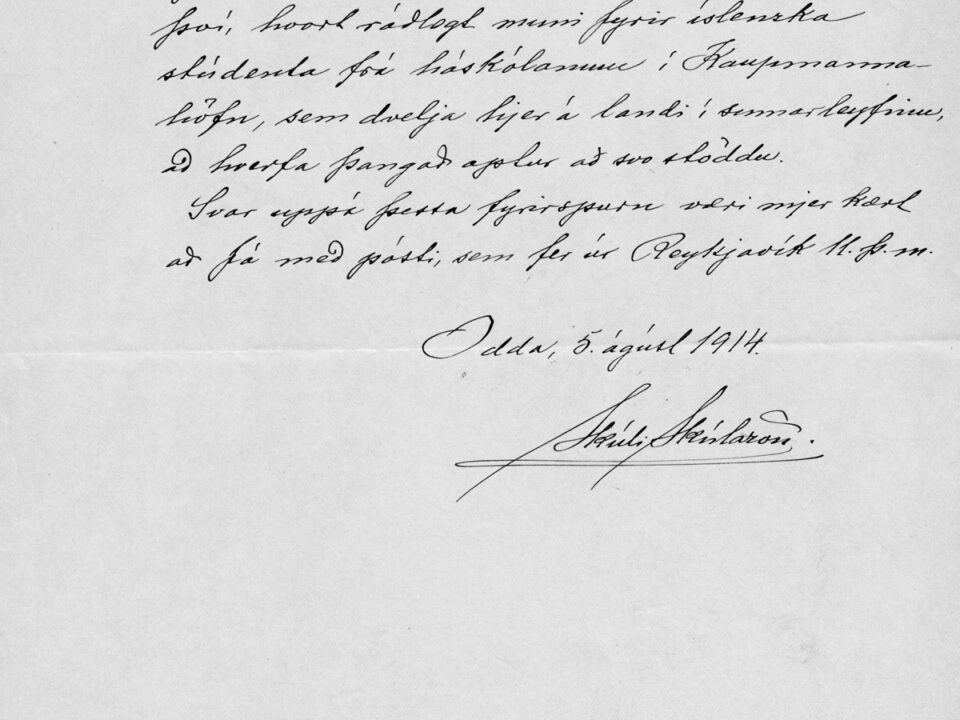 því, hvort ráðlegt muni fyrir íslenzka
stúdenta frá háskólanum í Kaupmanna-
höfn, sem dvelja hjer á landi í sumarleyfinu,
að hverfa þangað aptur að svo stöddu.
Svar uppá þessa fyrirspurn væri mjer kært
að fá með pósti, sem fer úr Reykjavík 11. þ.m.
Odda, 5. ágúst 1914.
Skúli Skúlason.